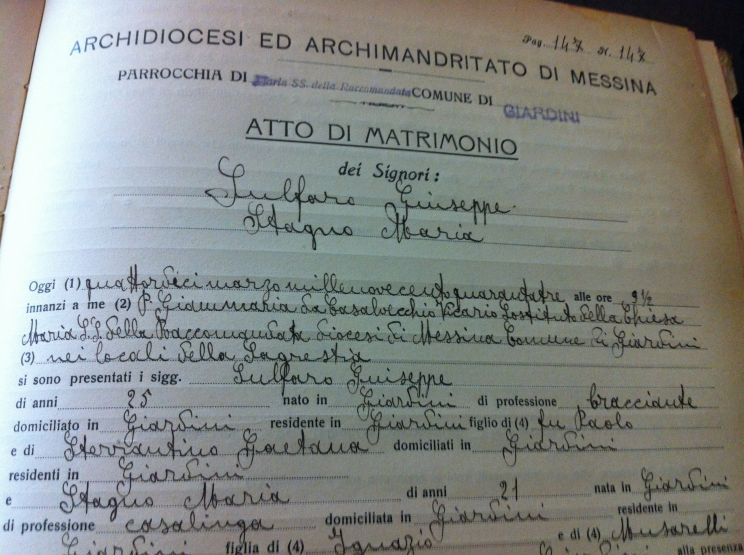 Pag. 147 N. 147
ARCHIDIOCESI ED ARCHIMANDRITATO DI MESSINA
PARROCCHIA DI Maria SS. della Raccomandata COMUNE DI GIARDINI
ATTO DI MATRIMONIO
dei Signori:
Sulfaro Giuseppe
Stagno Maria
Oggi (1) quattordici marzo millenovecentoquarantatre alle ore 9 ½
innanzi a me (2) P. Gianmaria da Casalvecchio Vicario Sostituto della Chiesa
Maria SS. della Raccomandata diocesi di Messina Comune di Giardini
(3) nei locali della Sagrestia
si sono presentati i sigg. Sulfaro Giuseppe
di anni 25 nato in Giardini di professione bracciante
domiciliato in Giardini residente in Giardini figlio di (4) fu Paolo
e di Sterrantino Gaetana domiciliati in Giardini
residenti in Giardini
e Stagno Maria di anni 21 nata in Giardini
di professione casalinga domiciliata in Giardini residente in
Giardini figlia di (4) Ignazio e di (4) Musarelli
alla presenza